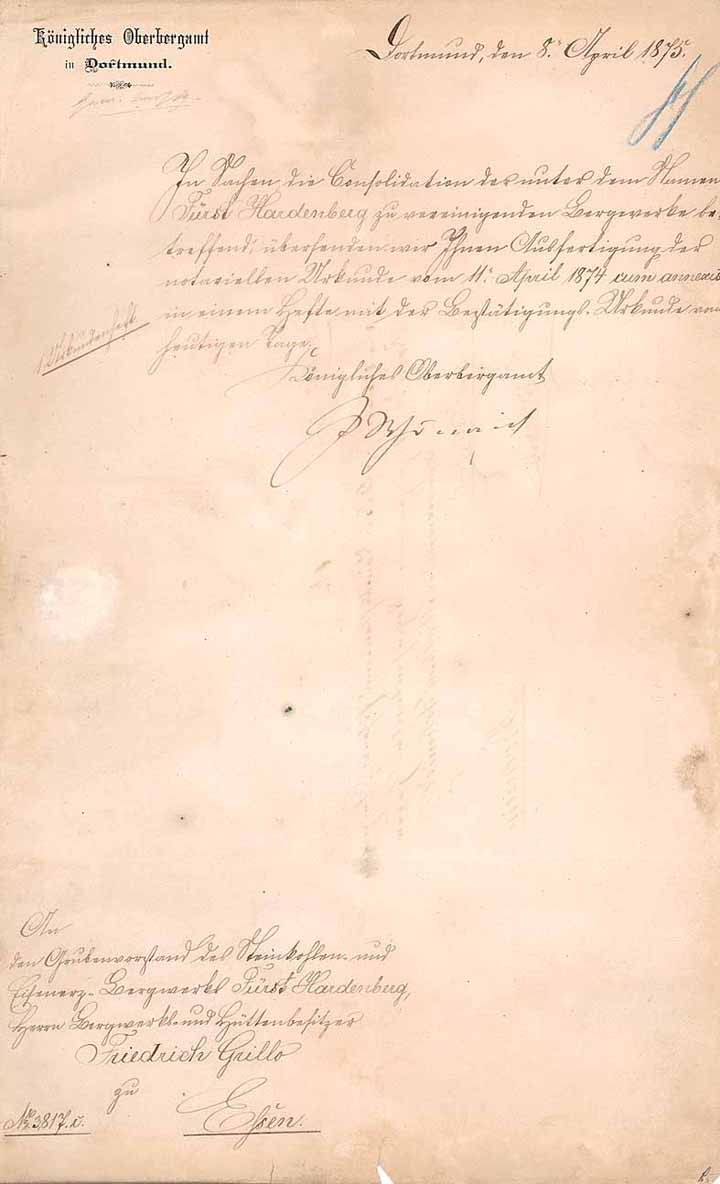 Königliches Oberbergamt
in Dortmund.
Dortmund, den 8. April 1875.
In Sachen die Consolidation der unter dem Namen
Fürst Hardenberg zu vereinigenden Bergwerke be-
treffend, übersenden wir Ihnen Ausfertigung der
notariellen Urkunde vom 11. April 1874 cum annexis
in einem Hefte mit der Bestätigungs-Urkunde vom
heutigen Tage.
1 Urkundenheft
Königliches Oberbergamt
An
den Grubenvorstand des Steinkohlen- und
Eisenerz-Bergwerks Fürst Hardenberg,
Herrn Bergwerks- und Hüttenbesitzer
Friedrich Grillo
zu
Essen.
No. 3817.